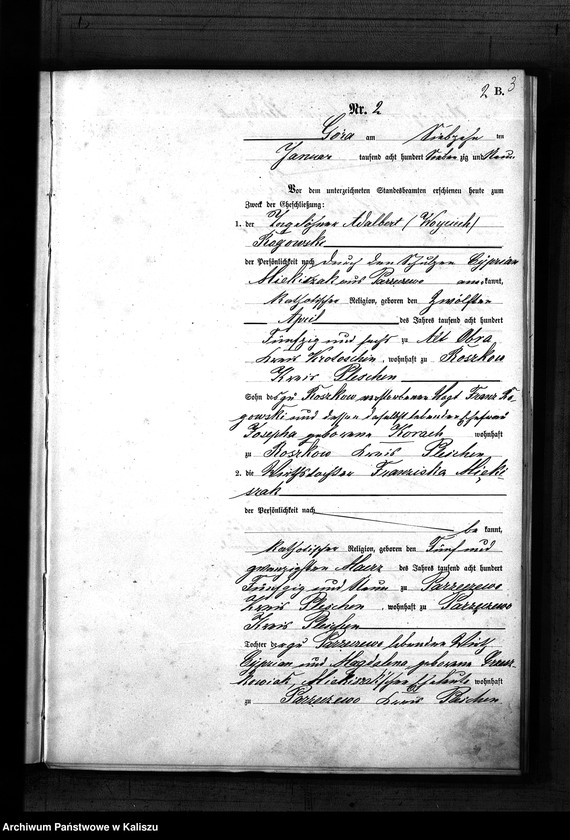 2 B. 3
Nr. 2
Góra am Siebzehn ten
Januar tausend acht hundert Sieben zig und Neun.
Vor dem unterzeichneten Standesbeamten erschienen heute zum
Zweck der Eheschließung:
1. der Tagelöhner Adalbert (Woyciech)
Rogowski
der Persönlichkeit nach durch den Schulzen Cyprian
Miekiszak aus Parzczewo anerkannt,
katholischer Religion, geboren den Zwölften
April des Jahres tausend acht hundert
Fünfzig und sechs zu Alt Obra
Kreis Krotoschin, wohnhaft zu Roszkow
Kreis Pleschen
Sohn des zu Roszkow verstorbenen Vogt Franz Ro-
gowski und dessen daselbst lebenden Ehefrau
Josepha geborene Korach wohnhaft
zu Roszkow Kreis Pleschen
2. die Wirthstochter Franziska Mieki-
szak
der Persönlichkeit nach
be kannt,
katholischer Religion, geboren den Fünf und
zwanzigsten Maerz des Jahres tausend acht hundert
Fünfzig und Neun zu Parzczewo
Kreis Pleschen, wohnhaft zu Parzczewo
Kreis Pleschen
Tochter der zu Parzczewo lebenden Wirth
Cyprian und Magdalena geborene
Miekiszak'schen Eheleute wohnhaft
zu Parzczewo Kreis Pleschen
Archiwum Państwowe w Kaliszu